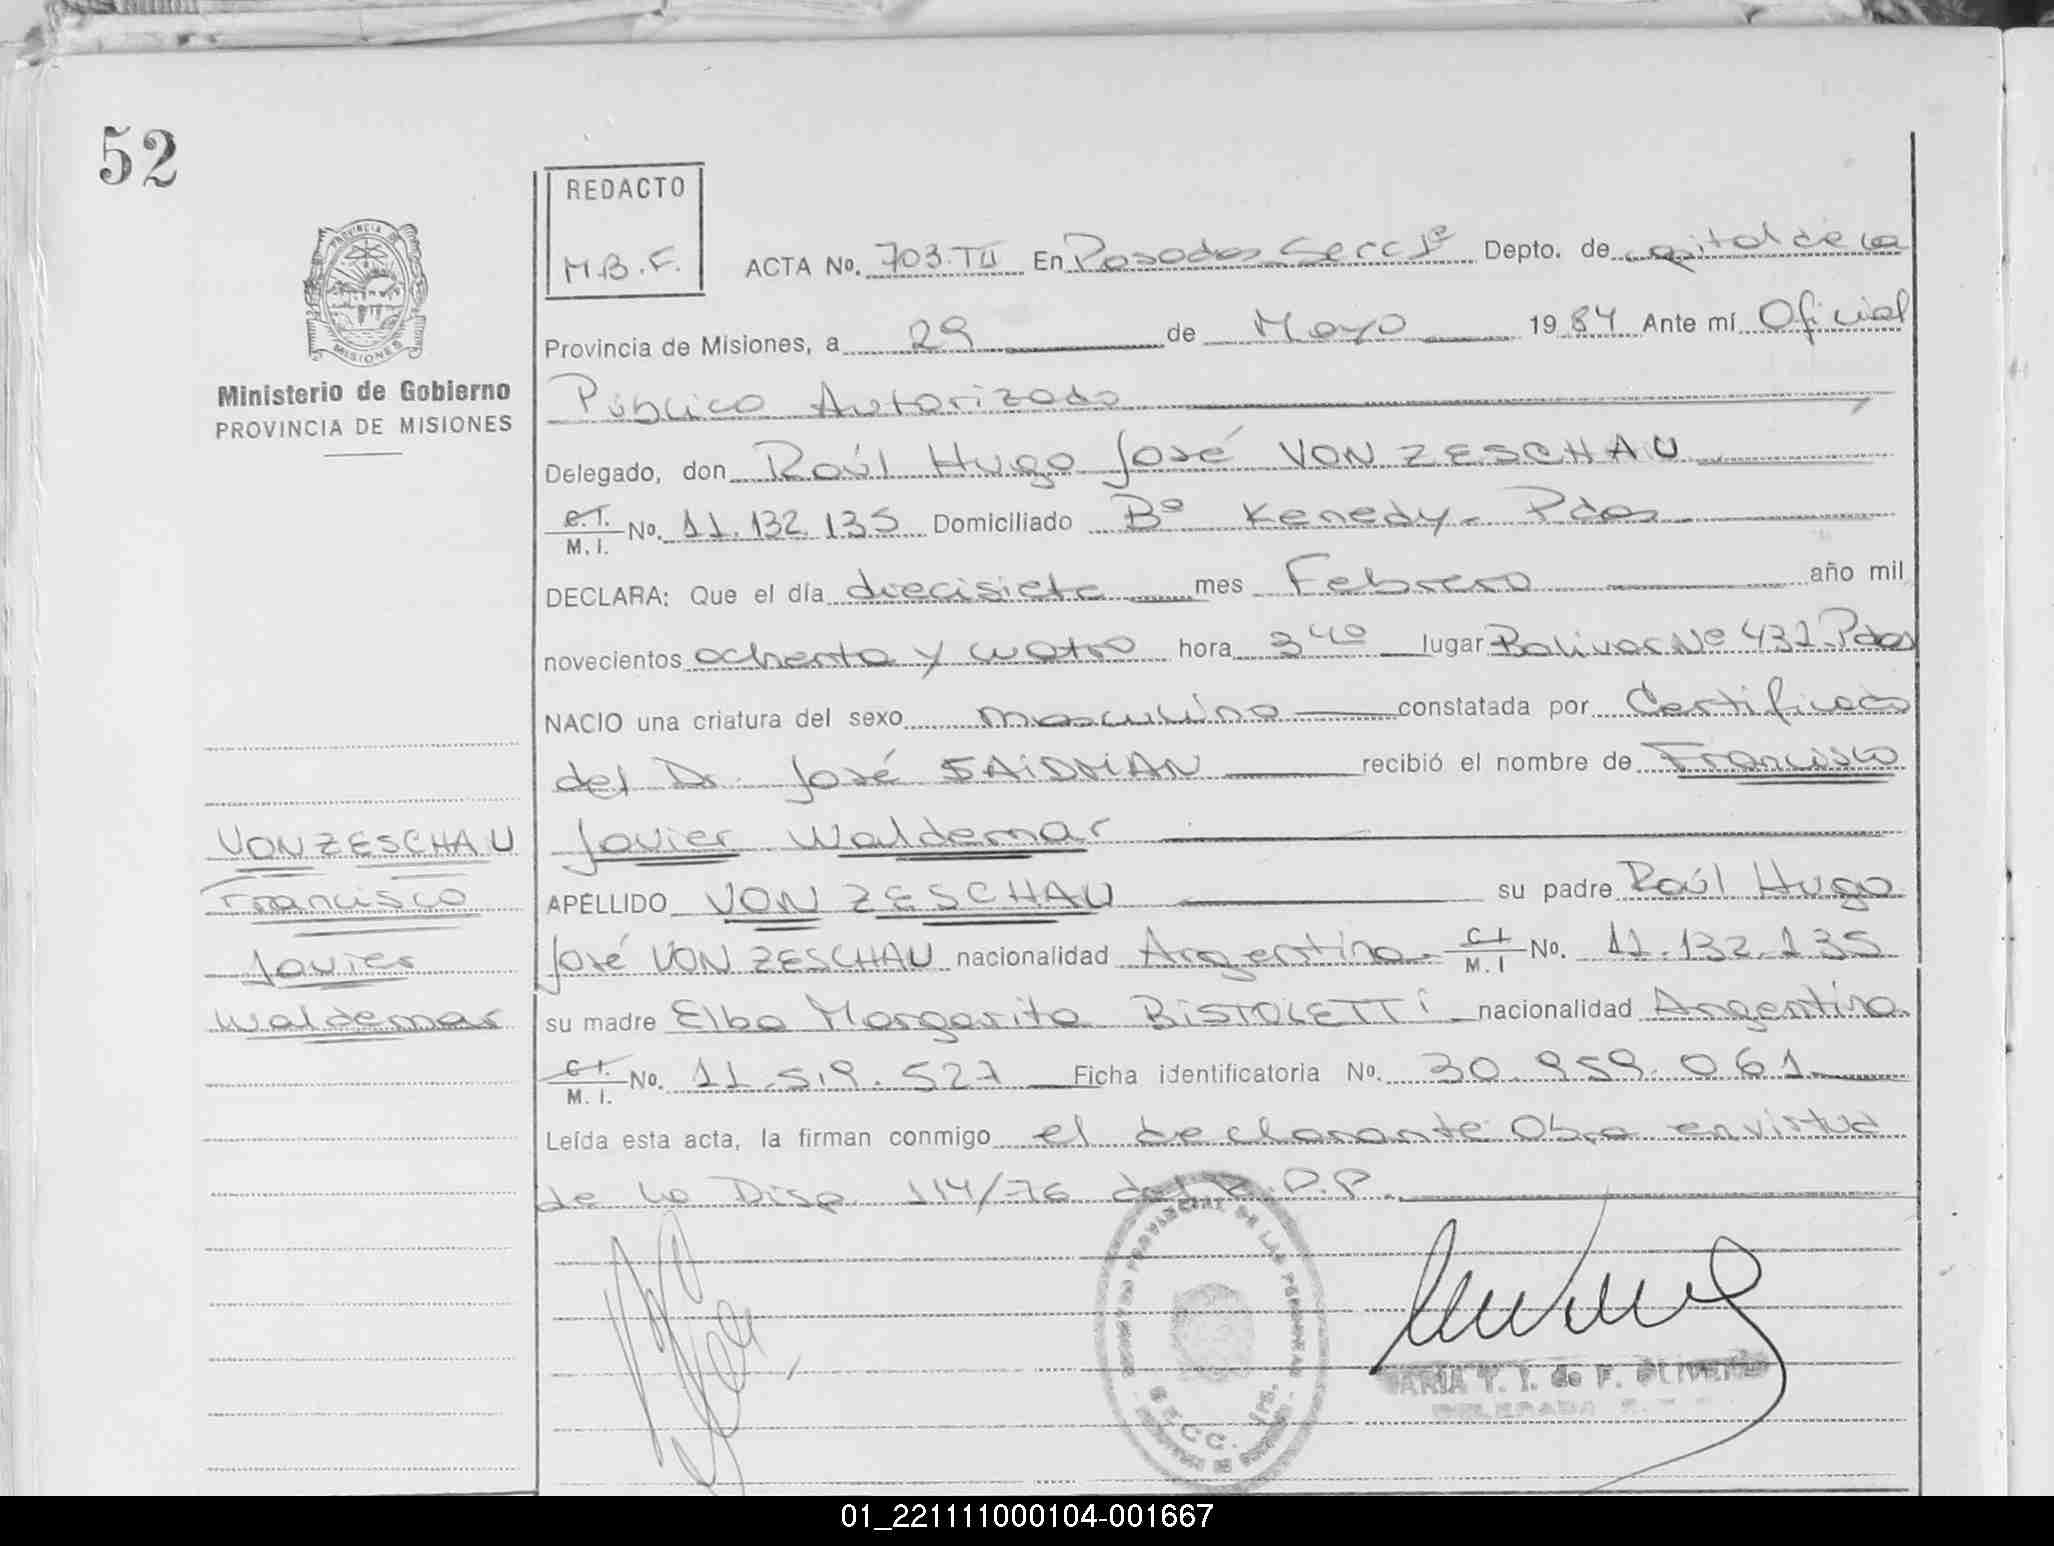 52
REDACTO
M.B.F.
ACTA No. 703.TII En Posadas Secc 1ª Depto. de capital de la
PROVINCIA DE
MISIONES
Provincia de Misiones, a 29 de Mayo 1984 Ante mí Oficial
Ministerio de Gobierno
PROVINCIA DE MISIONES
Público Autorizado
Delegado, don Raúl Hugo José VON ZESCHAU
C.I. M.I. No. 11.132.135 Domiciliado Bº Kenedy. Pdas
DECLARA: Que el día diecisiete mes Febrero año mil
novecientos ochenta y cuatro hora 3 40 lugar Bolivar Nº 432 Pdas
NACIO una criatura del sexo masculino constatada por Certificado
del Dr. José SAIDMAN recibió el nombre de Francisco
Javier Waldemar
APELLIDO VON ZESCHAU su padre Raúl Hugo
José VON ZESCHAU nacionalidad Argentina. C.I. M.I No. 11.132.135
su madre Elba Margarita BISTOLETTI nacionalidad Argentina
C.I. M.I. No. 11.519.527 Ficha identificatoria No. 30.959.061
Leída esta acta, la firman conmigo el declarante Obra en virtud
de la Disp 114/76 del R.P.P.
VON ZESCHAU
Francisco
Javier
Waldemar
PROVINCIAL DE LAS PERSONAS
SECC. 1ra.
MARIA Y. T. de F. OLIVEIRA
DELEGADA
01_221111000104-001667